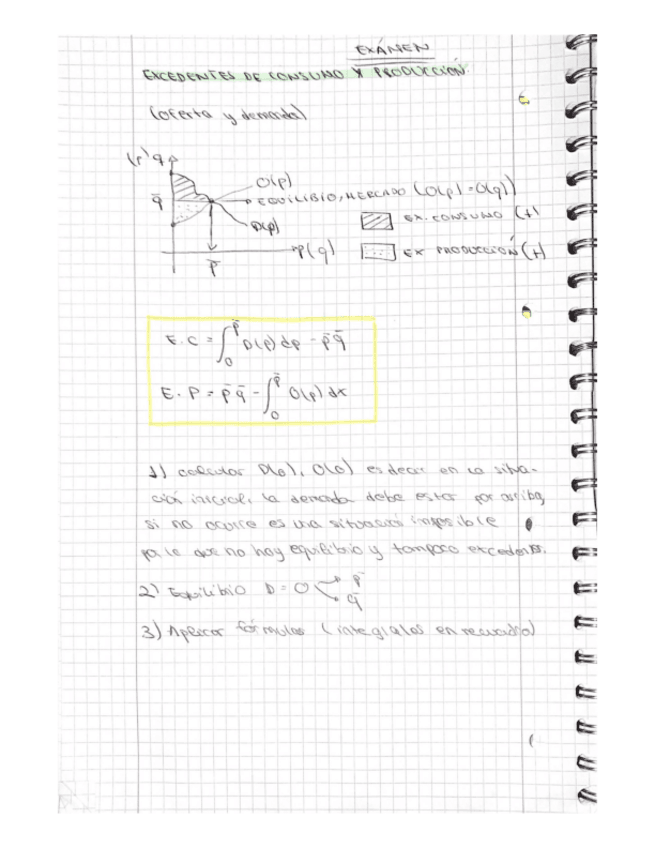 EXÁMEN
EXCEDENTES DE CONSUMO Y PRODUCCIÓN
(oferta y demanda)
(r) q
O(p)
q̄
EQUILIBRIO, MERCADO (O(p) = O(q))
D(p)
EX. CONSUMO (+)
p(q)
EX PRODUCCIÓN (+)
p̄
E.C = ∫₀^p̄ D(p) dp - p̄ q̄
E.P = p̄ q̄ - ∫₀^p̄ O(p) dx
1) calcular D(0), O(0) es decir en la situa-
ción inicial, la demada debe estar por arriba,
si no ocurre es una situación imposible
pa le que no hay equilibrio y tampoco excedentes.
2) Equilibrio D = O p̄
q̄
3) Aplicar fórmulas (integrales en recuadro)